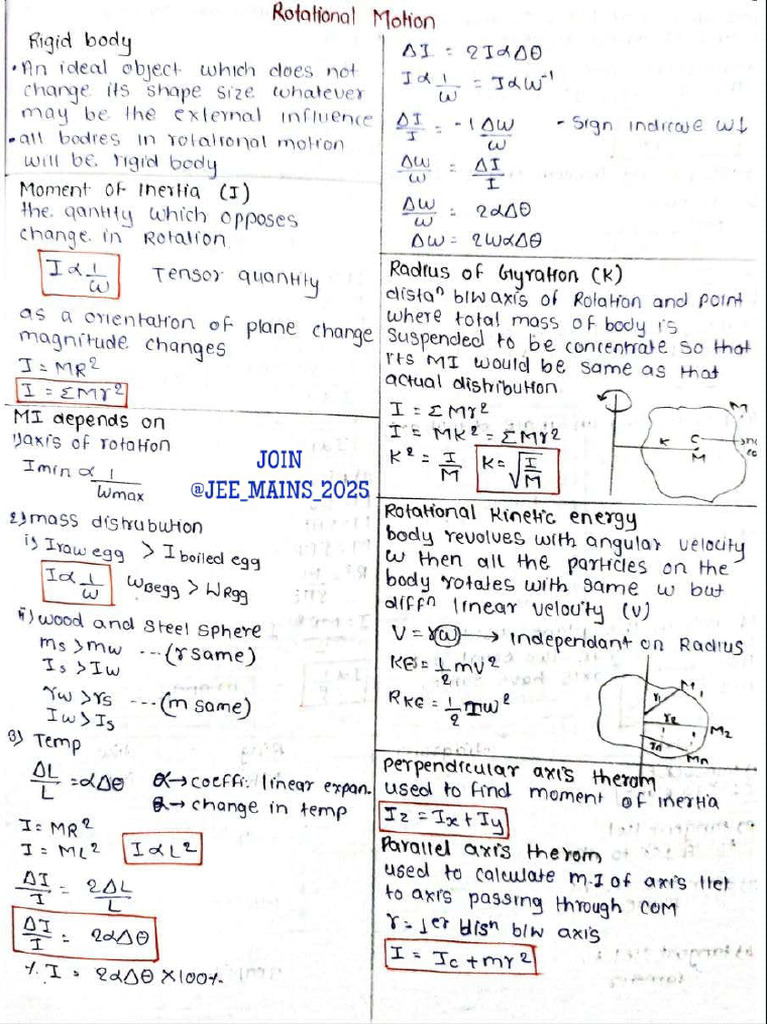 Rotational Motion
Rigid body
• An ideal object which does not
change its shape size whatever
may be the external influence
• all bodies in rotational motion
will be rigid body
Moment of Inertia (I)
the qantity which opposes
change in Rotation
I ∝ 1/ω Tensor quantity
as a orientation of plane change
magnitude changes
I = MR²
I = ΣMr²
MI depends on
1) axis of rotation
Imin ∝ 1/ωmax
JOIN
@JEE_MAINS_2025
2) mass distrubution
i) I raw egg > I boiled egg
I ∝ 1/ω ωBegg > ωRgg
ii) wood and steel sphere
ms > mw ---(r same)
Is > Iw
rw > rs ---(m same)
Iw > Is
3) Temp
ΔL/L = αΔθ α → coeffi. linear expan.
θ → change in temp
I = MR²
I = ML² I ∝ L²
ΔI/I = 2ΔL/L
ΔI/I = 2αΔθ
% I = 2αΔθ × 100%
ΔI = 2IαΔθ
I ∝ 1/ω = I ∝ ω⁻¹
ΔI/I = -1 Δω/ω - sign indicate ω↓
Δω/ω = ΔI/I
Δω/ω = 2αΔθ
Δω = 2ωαΔθ
Radius of Gyration (K)
distaⁿ b/w axis of Rotation and point
where total mass of body is
suspended to be concentrate so that
its MI would be same as that
actual distribution
I = ΣMr²
I = MK² = ΣMr²
K² = I/M K = √(I/M)
M
K C
M
Rotational Kinetic energy
body revolves with angular velocity
ω then all the particles on the
body rotates with same ω but
diffⁿ linear velocity (v)
V = rω → independant on Radius
KE = 1/2 mv²
RKE = 1/2 Iω²
r1 M1
r2 M2
rn Mn
perpendicular axis therom
used to find moment of inertia
Iz = Ix + Iy
Parallel axis therom
used to calculate M.I of axis llel
to axis passing through COM
r = ⊥er disⁿ b/w axis
I = Ic + mr²